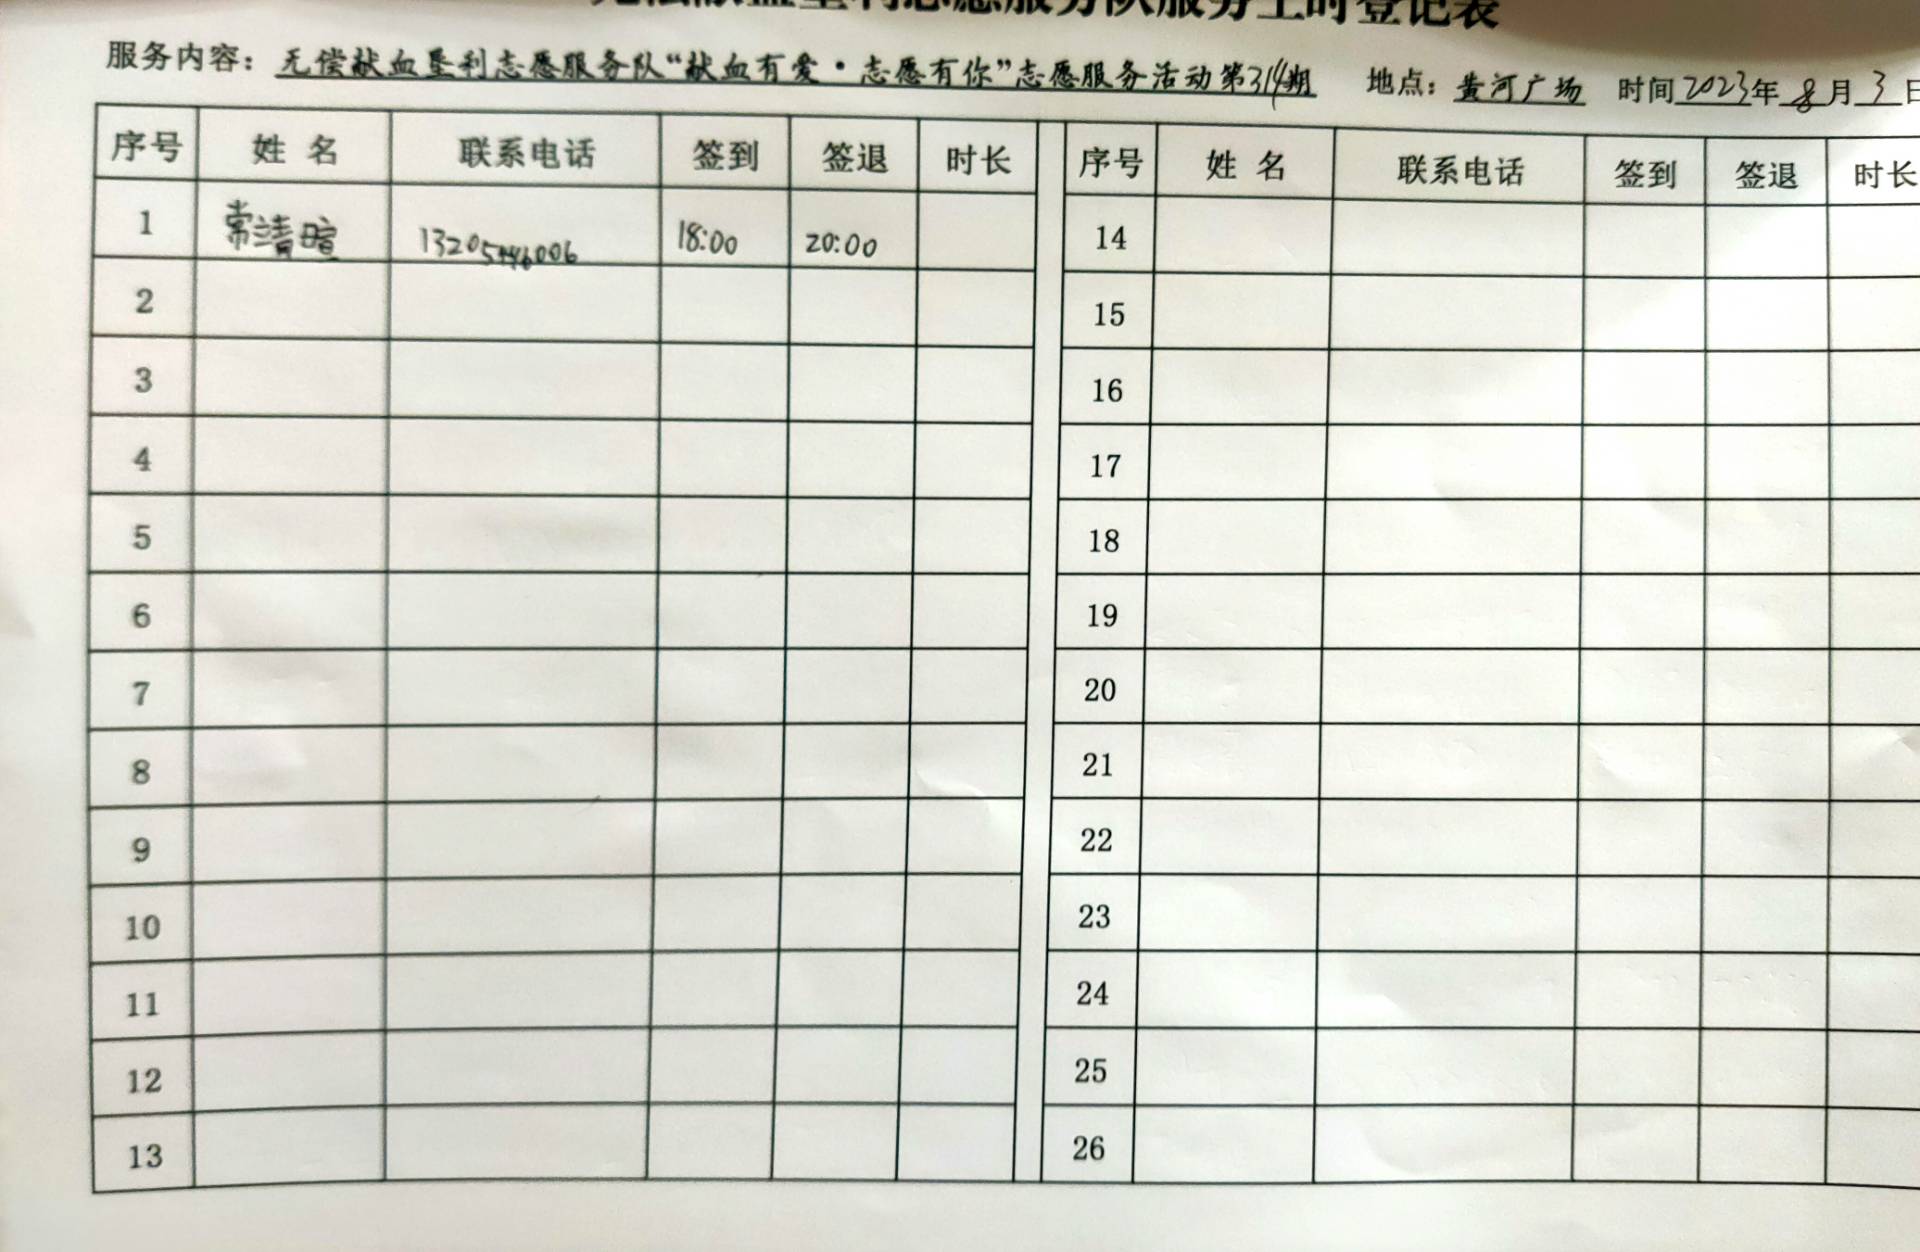 无偿献血垦利志愿服务队服务工时登记表
服务内容：无偿献血垦利志愿服务队“献血有爱·志愿有你”志愿服务活动第314期 地点：黄河广场 时间2023年8月3日
序号 姓名 联系电话 签到 签退 时长 序号 姓名 联系电话 签到 签退 时长
1 常靖暄 13205446006 18:00 20:00 14
2 15
3 16
4 17
5 18
6 19
7 20
8 21
9 22
10 23
11 24
12 25
13 26